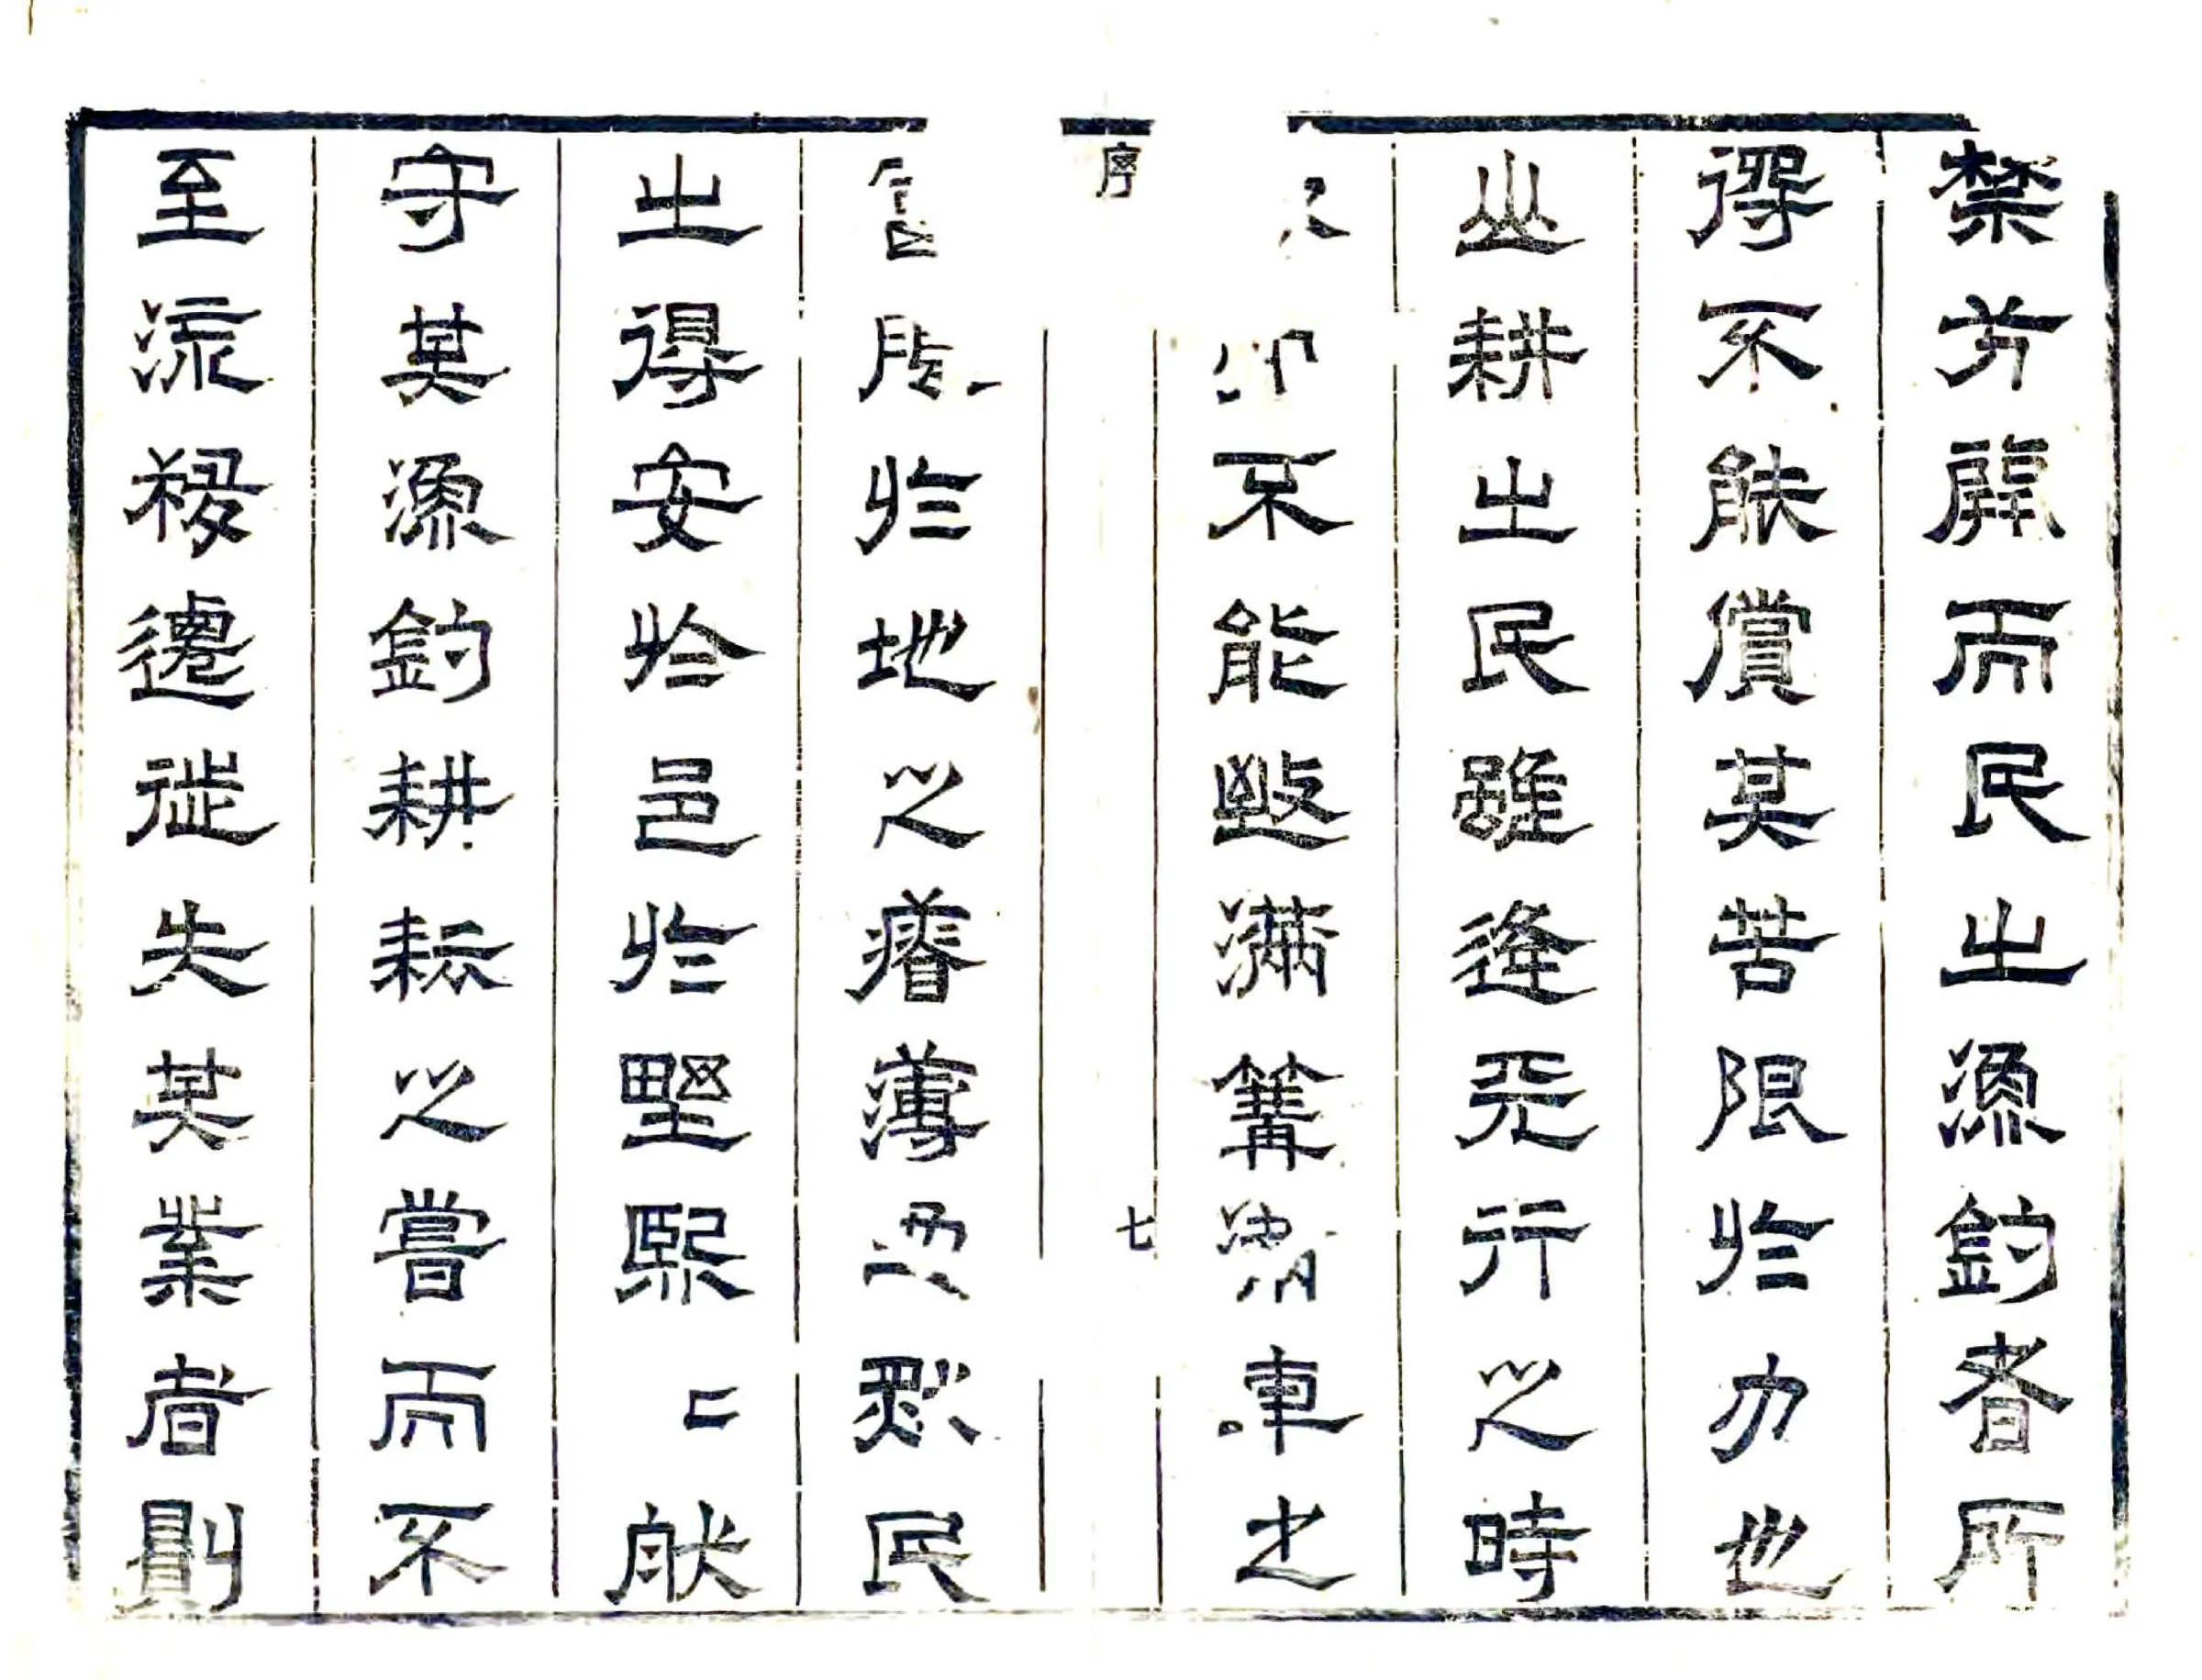 禁方開而民之漁釣者所
得不能償其苦限於力也
山耕之民雖逢天行之時
不能滿篝車之
序
七
限於地之瘠薄然民
之得安於邑於野熙二然
守其漁釣耕耘之嘗而不
至流移遷徙失其業者則